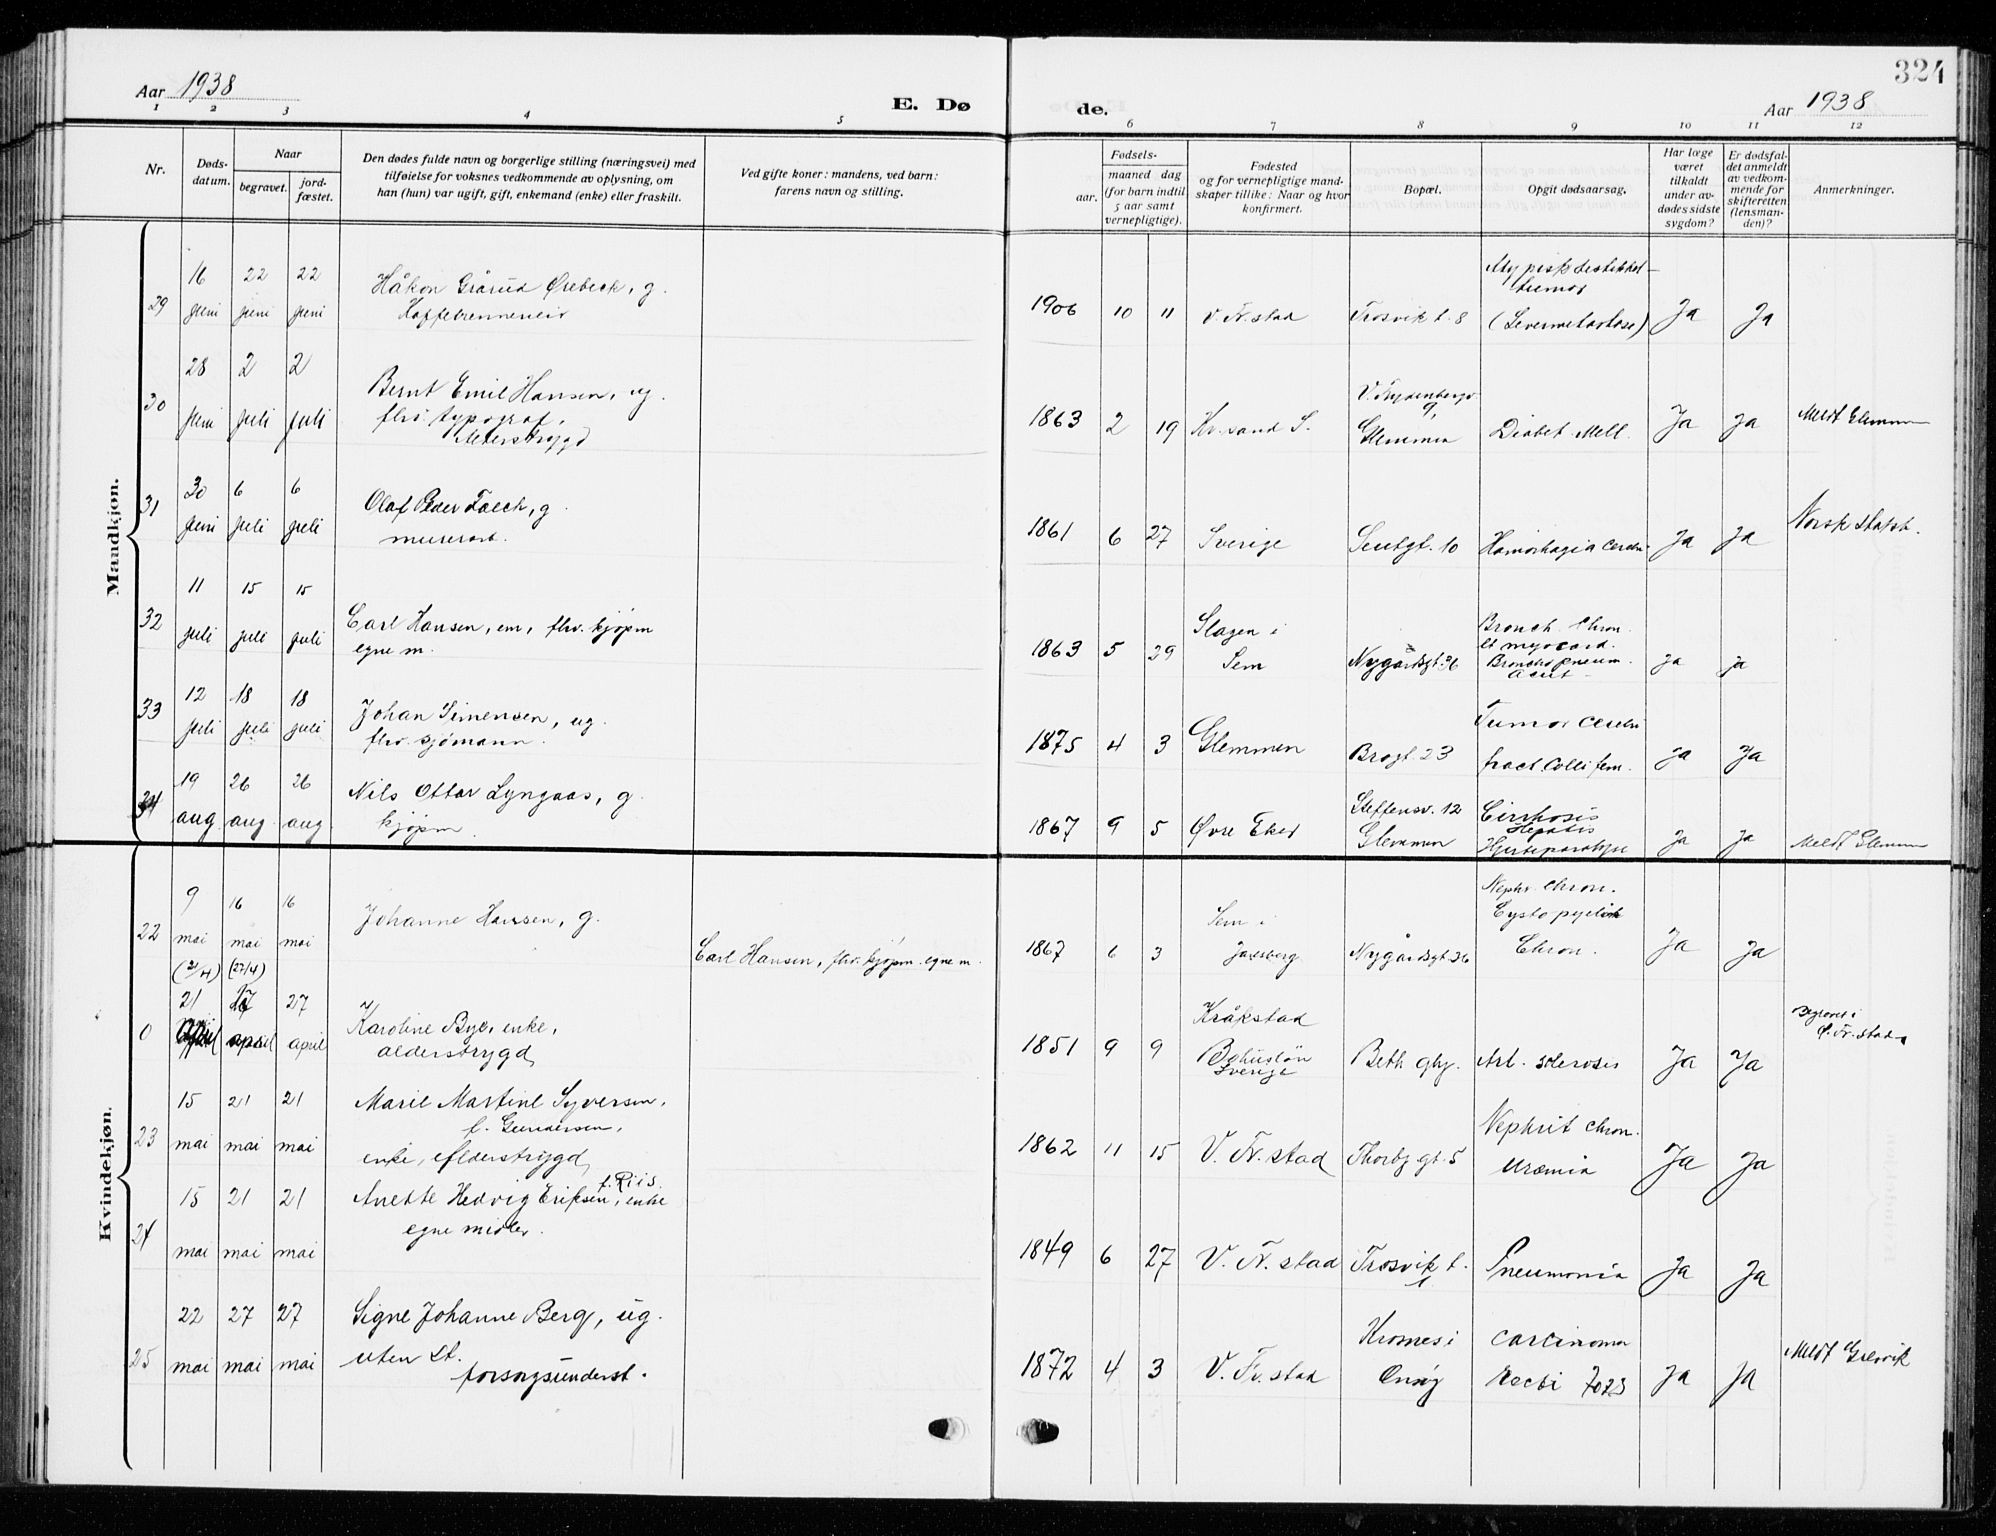 324
Aar 1938
E. Dø
de.
Aar 1938
1 2 3 4 5 6 7 8 9 10 11 12
Nr.
Døds-
datum.
Naar
begravet.
jord-
fæstet.
Den dødes fulde navn og borgerlige stilling (næringsvei) med
tilføielse for voksnes vedkommende av oplysning, om
han (hun) var ugift, gift, enkemand (enke) eller fraskilt.
Ved gifte koner: mandens, ved barn:
farens navn og stilling.
Fødsels-
aar.
maaned dag
(for barn indtil
5 aar samt
vernepligtige).
Fødested
og for vernepligtige mand-
skaper tillike: Naar og hvor
konfirmert.
Bopæl.
Opgit dødsaarsag.
Har læge
været
tilkaldt
under av-
dødes sidste
sygdom?
Er dødsfal-
det anmeldt
av vedkom-
mende for
skifteretten
(lensman-
den)?
Anmerkninger.
Mandkjøn.
29
16 22 22
juni juni juni
Håkon Gårud Ørebeck, g.
1906 10 11 V. Fr.stad Trosvik t. 8
tumor
Ja Ja
30
28 2 2
juni juli juli
Bernt Emil Hansen, ug.
fhv. typograf,
1863 2 19 Kr.sand S.
Glemmen
Diabet. Mell.
Ja Ja
Meldt Glemmen
31
30 6 6
juni juli juli
Olaf Peder Falch, g.
murerarb.
1861 6 27 Sverige
Hæmorhagia cerebr.
Ja Ja
Norsk statsb.
32
11 15 15
juli juli juli
Carl Hansen, em, fhv. kjøpm
egne m.
1863 5 29
Slagen i
Sem
Nygårdsgt. 36
Bronch. Chron.
et myocard.
Bronchopneum.
acut
ja ja
33
12 18 18
juli juli juli
Johan Simensen, ug.
fhv. sjømann.
1875 4 3 Glemmen Brogt. 23
Tumor cerebri
fract. colli fem.
ja Ja
34
19 26 26
aug aug aug
Nils Ottar Lyngaas, g.
kjøpm.
1867 9 5 Øvre Eker
Steffensv. 12
Glemmen
Cirrhosis
Hepatis
Hjerteparalyse
Ja Ja
Meldt Glemmen
Kvindekjøn.
22
9 16 16
mai mai mai
(21/4) (27/4)
Johanne Hansen, g.
Carl Hansen, fhv. kjøpm. egne m.
1867 6 3
Sem i
Jarlsberg
Nygårdsgt. 36
Nephr. chron.
Cystopyelit
Chron.
Ja Ja
0
21 27 27
april april april
Karoline Bye, enke,
alderstrygd
1851 9 9
Kråkstad
Bohuslän
Sverige
Beth. ghj.
Art. sclerosis
Ja Ja
Begravet i
Ø. Fr. stad
23
15 21 21
mai mai mai
Marie Martine Syversen,
f. Gundersen,
enke, alderstrygd
1862 11 15 V. Fr. stad Thorbj.gt. 5
Nephrit chron.
Uræmia
Ja Ja
24
15 21 21
mai mai mai
f. Riis.
Anette Hedvig Eriksen, enke
egne midler.
1849 6 27 V. Fr. stad Trosvik t.
1
Pneumonia
Ja Ja
25
22 27 27
mai mai mai
Signe Johanne Berg, ug.
uten st.
forsorgsunderst.
1872 4 3 V. Fr. stad
Onsøy
Carcinoma
Recti
Ja Ja
Meldt Gressvik